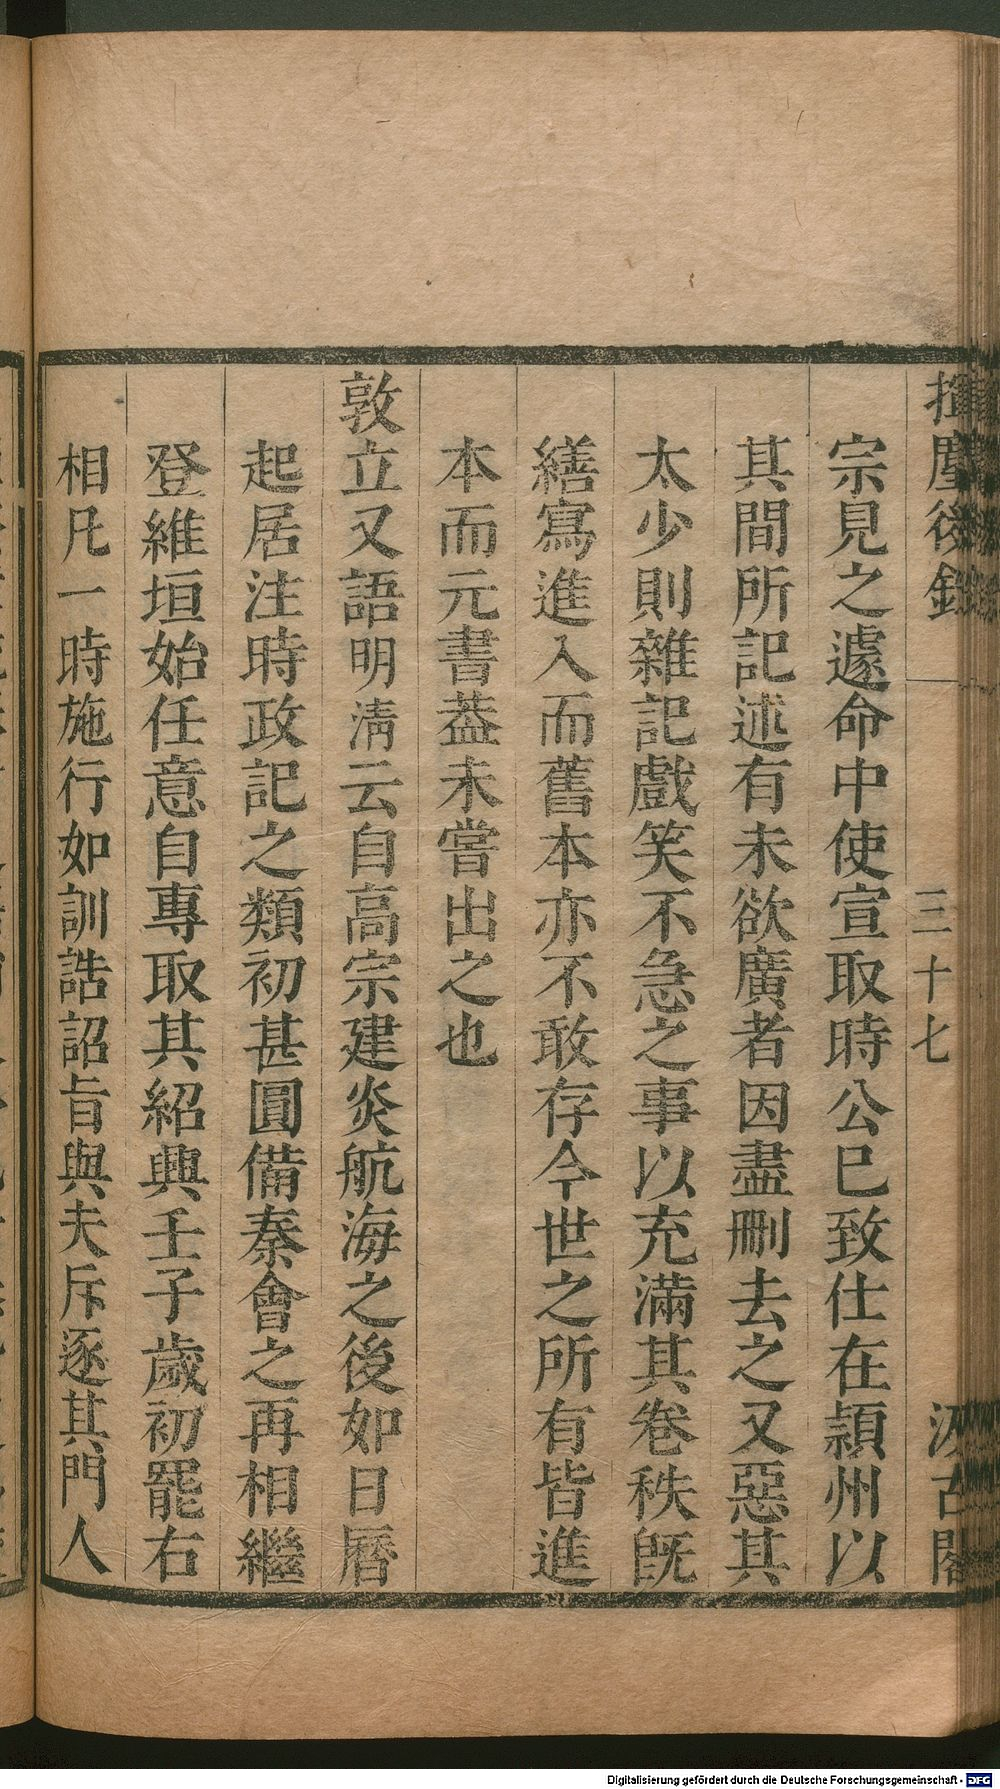 揮麈後錄
三十七
汲古閣
宗見之遽命中使宣取時公已致仕在頴州以
其間所記述有未欲廣者因盡刪去之又惡其
太少則雜記戲笑不急之事以充滿其卷秩旣
繕寫進入而舊本亦不敢存今世之所有皆進
本而元書葢未嘗出之也
敦立又語明清云自高宗建炎航海之後如日曆
起居注時政記之類初甚圓備秦會之再相繼
登維垣始任意自專取其紹興壬子歲初罷右
相凡一時施行如訓誥詔旨與夫斥逐其門人
Digitalisierung gefördert durch die Deutsche Forschungsgemeinschaft - DFG